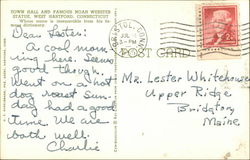 TOWN HALL AND FAMOUS NOAH WEBSTER
STATUE, WEST HARTFORD, CONNECTICUT
Whose name is inseparable from his famous dictionary.
Dear Lester:
A cool morn-
ing here. Seems
good though.
Went on a hot
dog roast Sun-
day had a good
time. We are
both well.
Charlie
POST CARD
Mr. Lester Whitehouse
Upper Ridge
Bridgton,
Maine